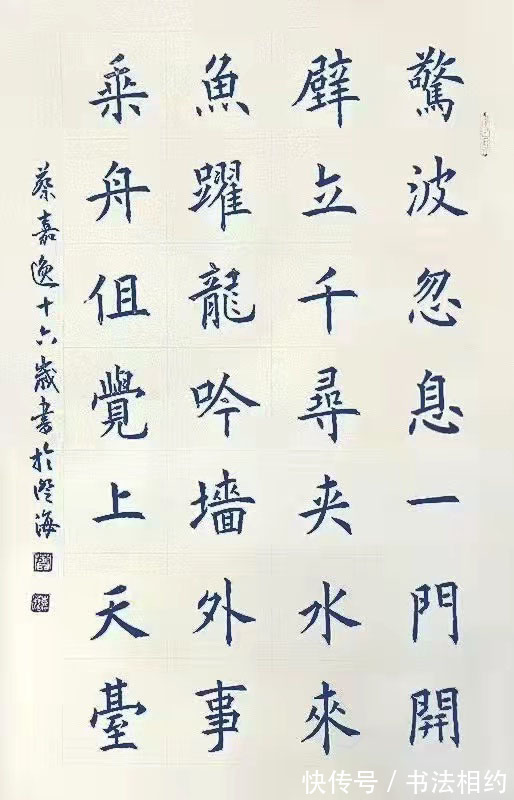 驚波忽息一門開
壁立千尋夾水來
魚躍龍吟墻外事
乘舟但覺上天臺
蔡嘉逸十六歲書於澄海
快传号 / 书法相约